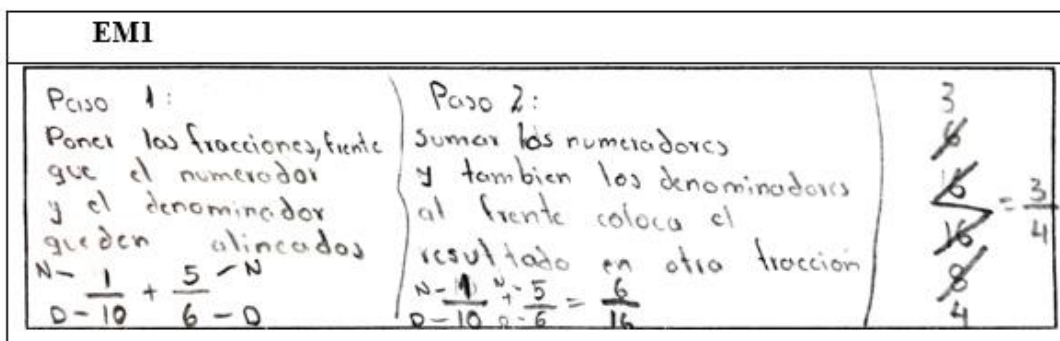 EM1
Paso 1:
Poner las fracciones, frente
que el numerador
y el denominador
queden alineados
N - 1/10 + 5/6 - N
D - 10 6 - D
Paso 2:
sumar los numeradores
y tambien los denominadores
al frente coloca el
resultado en otra fraccion
N - 1/10 + N - 5/6 = 6/16
D - 10 D - 6
3
6
16
16
8
4
= 3/4